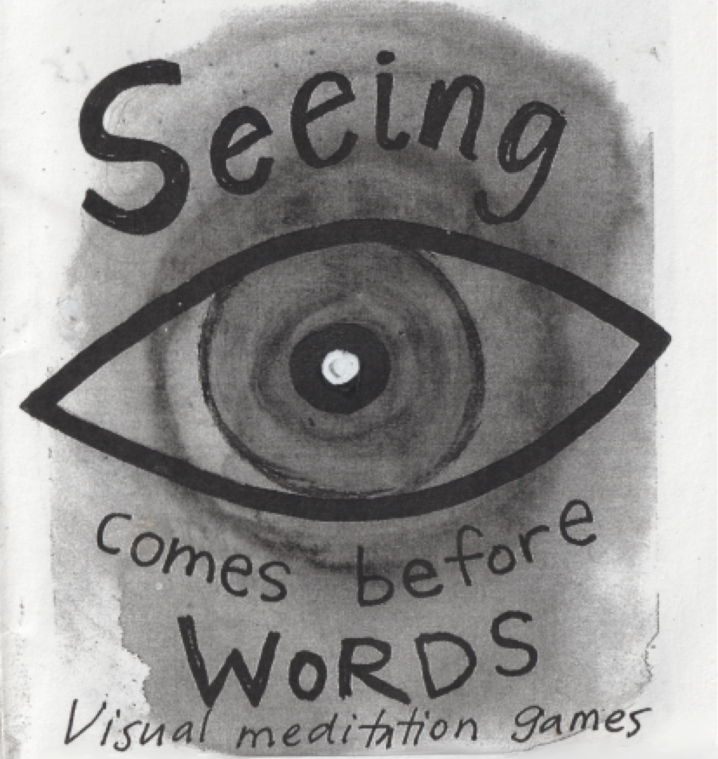 Seeing
comes before
WORDS
Visual meditation games